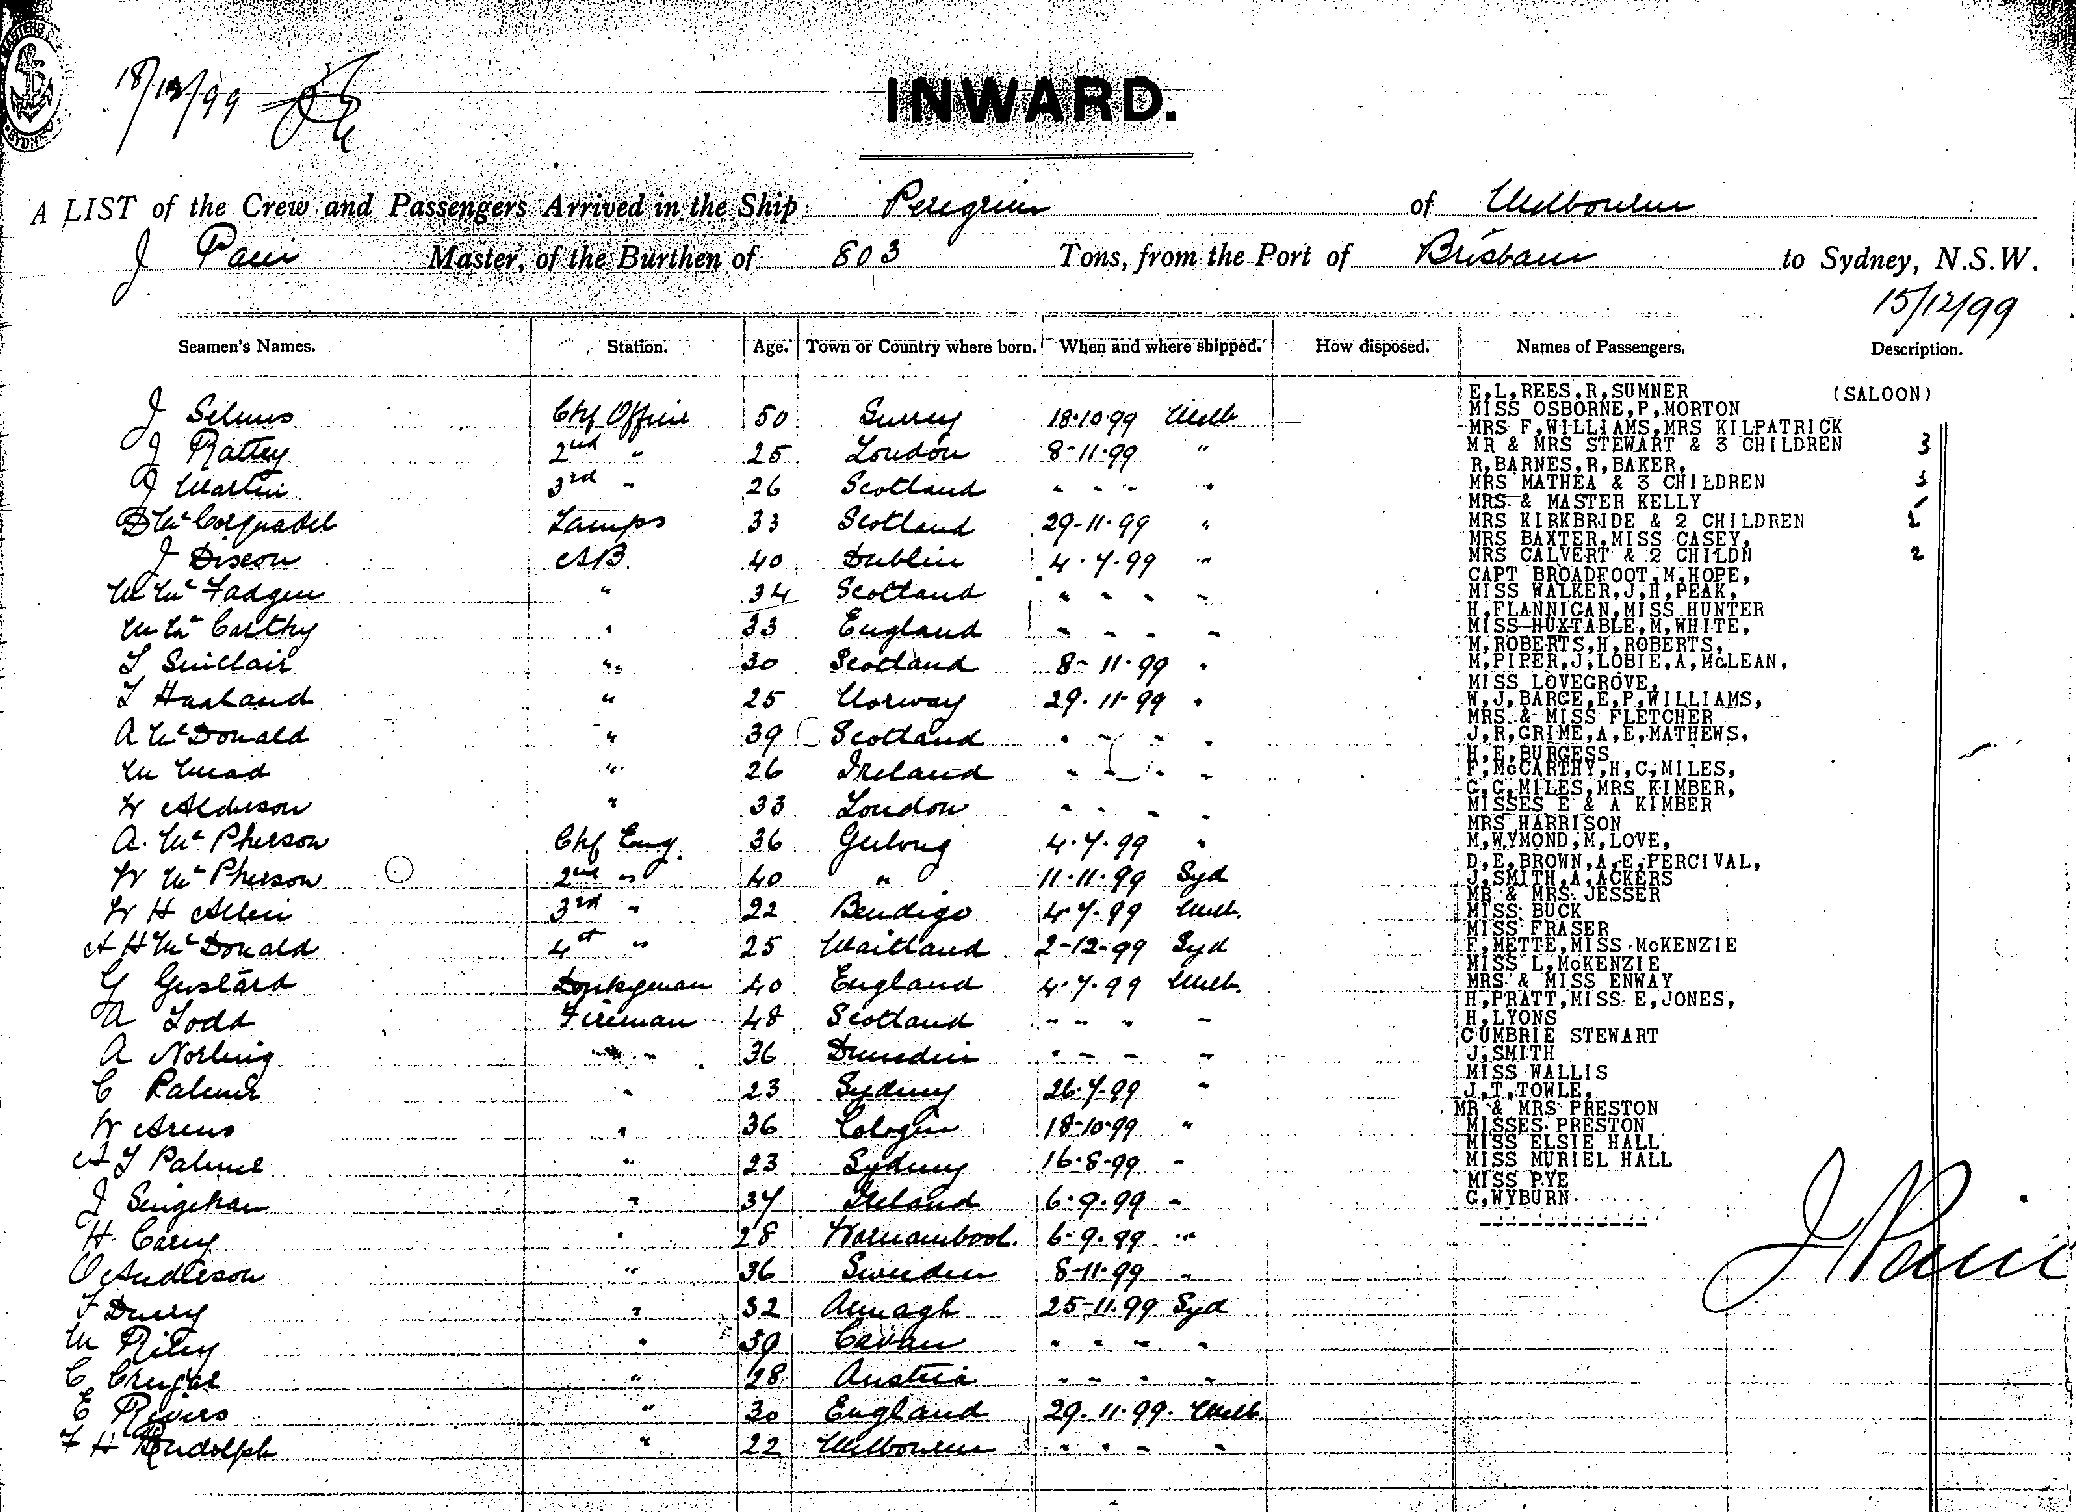 18/12/99
INWARD.
A LIST of the Crew and Passengers Arrived in the Ship Peregrine of Melbourne
J Master, of the Burthen of 803 Tons, from the Port of Brisbane to Sydney, N.S.W.
15/12/99
Seamen's Names. Station. Age. Town or Country where born. When and where shipped. How disposed. Names of Passengers. Description.
E,L,REES,R,SUMNER (SALOON)
J Chf Officer 50 Surrey 18·10·99 Melb MISS OSBORNE,P,MORTON
MRS F,WILLIAMS,MRS KILPATRICK
J Rattey 2nd " 25 London 8-11-99 " MR & MRS STEWART & 3 CHILDREN 3
R,BARNES,R,BAKER,
J Martin 3rd " 26 Scotland " " " " MRS MATHEA & 3 CHILDREN 3
MRS & MASTER KELLY
D Lamps 33 Scotland 29-11-99 " MRS KIRKBRIDE & 2 CHILDREN 2
MRS BAXTER,MISS CASEY,
J Dixon AB 40 Dublin 4·7·99 " MRS CALVERT & 2 CHILDN 2
CAPT BROADFOOT,M,HOPE,
M McFadgen " 34 Scotland " " " " MISS WALKER,J,H,PEAK,
H,FLANNIGAN,MISS HUNTER
M McCarthy " 33 England " " " " MISS HUXTABLE,M,WHITE,
M,ROBERTS,H,ROBERTS,
T Sinclair " 30 Scotland 8-11·99 " M,PIPER,J,LOBIE,A,McLEAN,
MISS LOVEGROVE,
T Haaland " 25 Norway 29·11·99 " W,J,BARGE,E,P,WILLIAMS,
MRS & MISS FLETCHER
A McDonald " 39 Scotland " " " " J,R,GRIME,A,E,MATHEWS,
H,E,BURGESS
M Mead " 26 Ireland " " " " F,McCARTHY,H,C,MILES,
G,G,MILES,MRS KIMBER,
W Alderson " 33 London " " " " MISSES E & A KIMBER
MRS HARRISON
A. McPherson Chf Eng. 36 Geelong 4·7·99 " M,WYMOND,M,LOVE,
D,E,BROWN,A,E,PERCIVAL,
W McPherson 2nd " 40 " 11·11·99 Syd J,SMITH,A,ACKERS
MR & MRS JESSER
W H Allen 3rd " 22 Bendigo 4·7·99 Melb. MISS BUCK
MISS FRASER
A H McDonald 4st " 25 Maitland 2-12-99 Syd F,METTE,MISS McKENZIE
MISS L,McKENZIE
G Gustard Donkeyman 40 England 4·7·99 Melb. MRS & MISS ENWAY
H,PRATT,MISS E,JONES,
A Todd Fireman 48 Scotland " " " " H,LYONS
CUMBRIE STEWART
A Norling " " 36 Dunedin " " " " J,SMITH
MISS WALLIS
C Palmer " 23 Sydney 26·7·99 " J,T,TOWLE,
MR & MRS PRESTON
W Arens " 36 Cologne 18-10-99 " MISSES PRESTON
MISS ELSIE HALL
A J Palmer " 23 Sydney 16·8·99 " MISS MURIEL HALL
MISS PYE
J " 37 Ireland 6·9·99 " G,WYBURN
H Carey " 28 Warnambool. 6·9·99 "
O Anderson " 36 Sweden 8-11·99 "
F " 32 Armagh 25-11·99 Syd
M Riley " 39 Cavan " " " "
C " 28 Austria " " " "
E Rivers " 30 England 29·11·99· Melb
F H Rudolph " 22 Melbourne " " " "